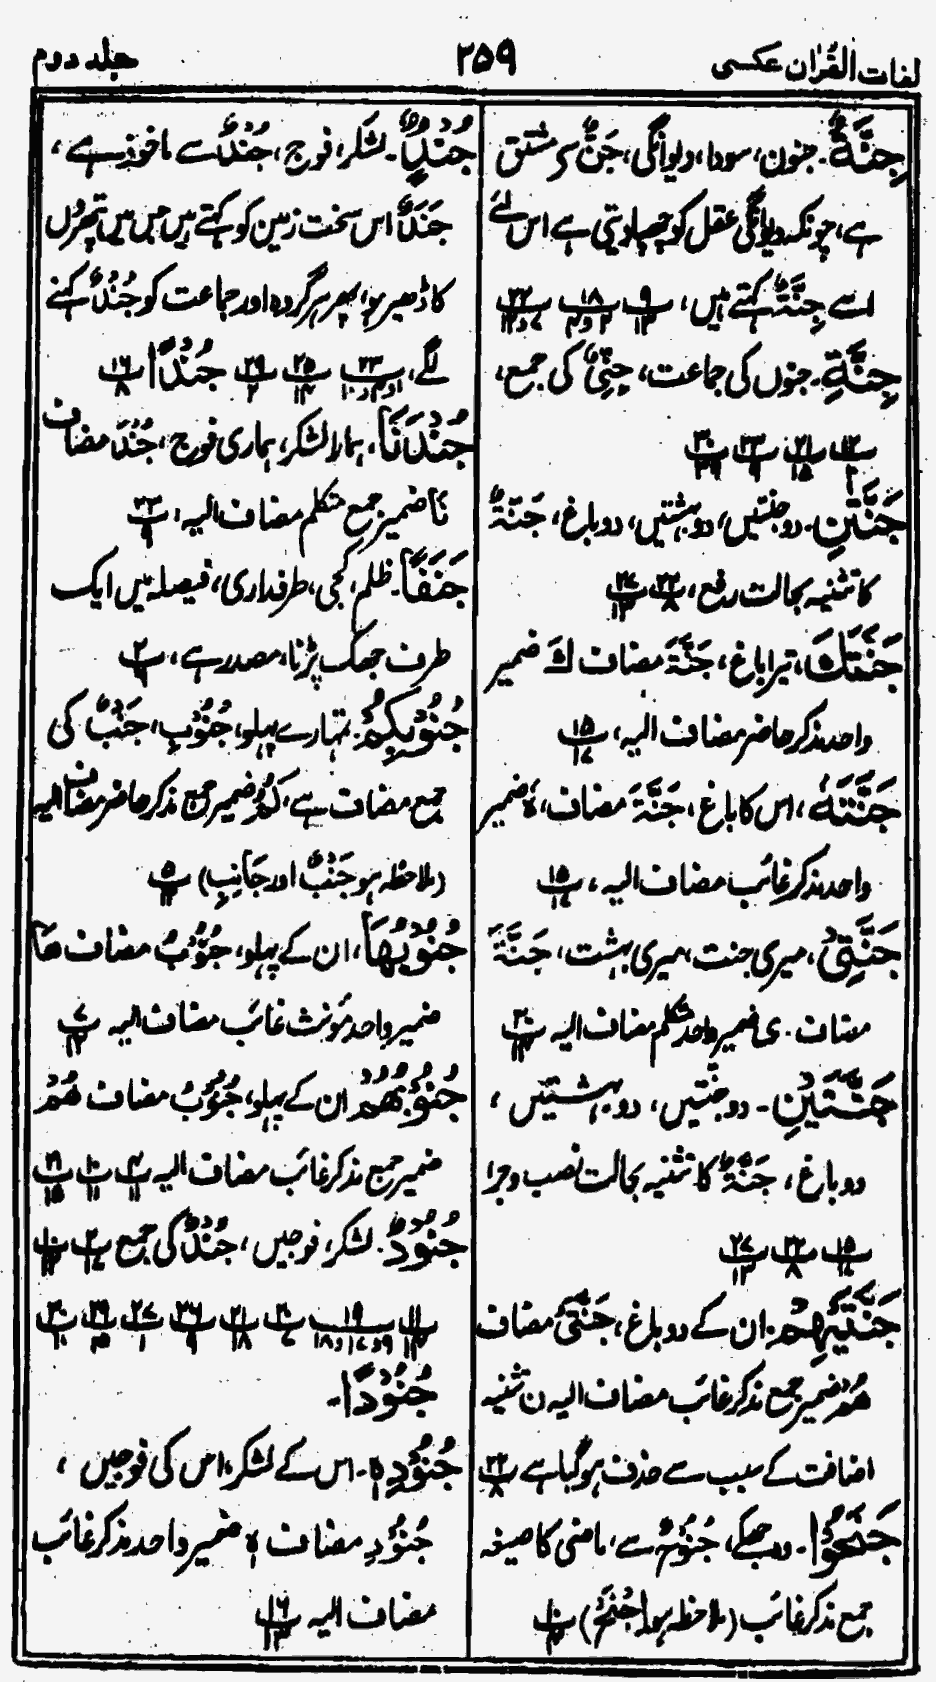 لغات القرآن عکسی
۲۵۹
جلد دوم
جِنَّةٌ۔ جنون، سودا، دیوانگی، جَنٌّ سے مشتق
ہے، چونکہ دیوانگی عقل کو چھپا دیتی ہے اس لئے
اسے جِنَّةٌ کہتے ہیں،
جِنَّةِ۔ جنوں کی جماعت، جِنِّیٌّ کی جمع،
جَنَّتٰنِ۔ دو جنتیں، دو بہشتیں، دو باغ، جَنَّةٌ
کا تثنیہ بحالت رفع،
جَنَّتَكَ، تیرا باغ، جَنَّةَ مضاف كَ ضمیر
واحد مذکر حاضر مضاف الیہ،
جَنَّتَهٗ، اس کا باغ، جَنَّةَ مضاف، هٗ ضمیر
واحد مذکر غائب مضاف الیہ،
جَنَّتِیْ، میری جنت، میری بہشت، جَنَّةَ
مضاف۔ ی ضمیر واحد متکلم مضاف الیہ
جَنَّتَیْنِ۔ دو جنتیں، دو بہشتیں،
دو باغ، جَنَّةٌ کا تثنیہ بحالت نصب و جر
جَنَّتَیْهِمْ۔ ان کے دو باغ، جَنَّتَیْ مضاف
هُمْ ضمیر جمع مذکر غائب مضاف الیہ ن تثنیہ
اضافت کے سبب سے حذف ہو گیا ہے
جَنَحُوْا۔ وہ جھکے، جُنُوْحٌ سے، ماضی کا صیغہ
جمع مذکر غائب (ملاحظہ ہو اِجْنَحْ)
جُنْدٌ۔ لشکر، فوج، جُنْدٌ سے ماخوذ ہے،
جَنَدٌ اس سخت زمین کو کہتے ہیں جس میں پتھروں
کا ڈھیر ہو، پھر ہر گروہ اور جماعت کو جُنْدٌ کہنے
لگے، جُنْدًا
جُنْدَنَا، ہمارا لشکر، ہماری فوج، جُنْدَ مضاف
نَا ضمیر جمع متکلم مضاف الیہ،
جَنَفًا۔ ظلم، کجی، طرفداری، فیصلہ میں ایک
طرف جھک پڑنا، مصدر ہے،
جُنُوْبِكُمْ۔ تمہارے پہلو، جُنُوْبِ، جَنْبٌ کی
جمع مضاف ہے، كُمْ ضمیر جمع مذکر حاضر مضاف الیہ
(ملاحظہ ہو جَنْبٌ اور جَانِبِ)
جُنُوْبُهَا، ان کے پہلو، جُنُوْبُ مضاف هَا
ضمیر واحد مونث غائب مضاف الیہ
جُنُوْبُهُمْ ان کے پہلو، جُنُوْبُ مضاف هُمْ
ضمیر جمع مذکر غائب مضاف الیہ
جُنُوْدٌ۔ لشکر، فوجیں، جُنْدٌ کی جمع
جُنُوْدًا۔
جُنُوْدِهٖ۔ اس کے لشکر، اس کی فوجیں،
جُنُوْدِ مضاف هٖ ضمیر واحد مذکر غائب
مضاف الیہ